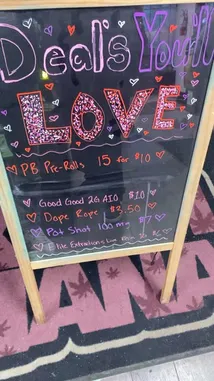 Deal's You'll
LOVE
PB Pre-Rolls 15 for $10
Good Good 2G AIO $10
Dope Rope $3.50
Pot Shot 100mg $7
Elite Extractions Live
ANA